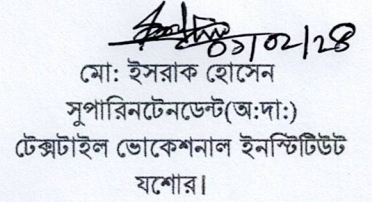 ০১/০২/২৪
মো: ইসরাক হোসেন
সুপারিনটেনডেন্ট(অ:দা:)
টেক্সটাইল ভোকেশনাল ইনস্টিটিউট
যশোর।